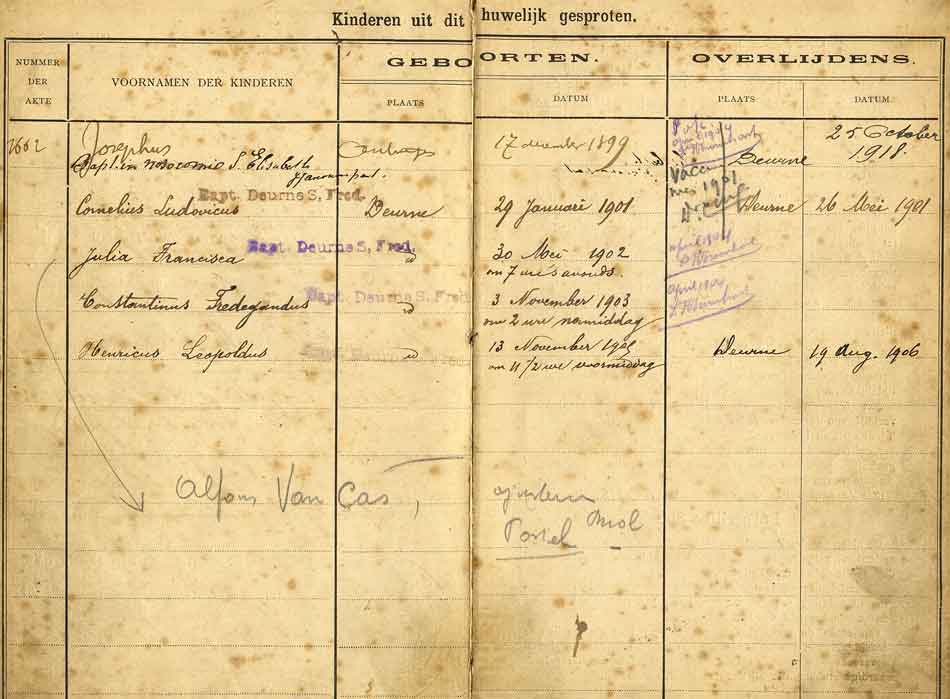 Kinderen uit dit huwelijk gesproten.
NUMMER DER AKTE
VOORNAMEN DER KINDEREN
GEBOORTEN.
OVERLIJDENS.
PLAATS
DATUM
PLAATS
DATUM
Josephus 17 december 1899 Deurne 25 October 1918.
Bapt. in nosocomio S. Elisabeth
Vaccin
mei 1901
Bapt. Deurne S. Fred.
Cornelius Ludovicus Deurne 29 Januari 1901 Deurne 26 Mei 1901
Bapt. Deurne S, Fred.
Julia Francisca id 30 Mei 1902
om 7 ure 's avonds.
april 1904
Bapt. Deurne S. Fred.
Constantinus Fredegandus id 3 November 1903
om 2 ure namiddag
april
Henricus Leopoldus id 13 November 1905 Deurne 19 Aug. 1906
om 11 1/2 ure voormiddag
Alfons Van Cas,
Postel Mol